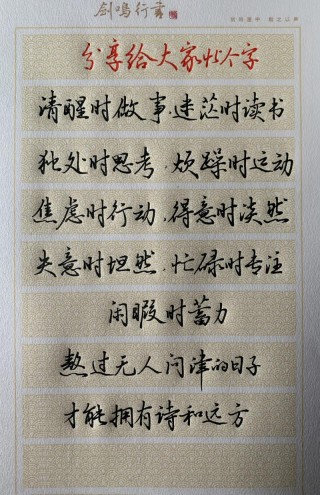 剑鸣行书
分享给大家45个字
清醒时做事.迷茫时读书
独处时思考.烦躁时运动
焦虑时行动.得意时淡然
失意时坦然.忙碌时专注
闲暇时蓄力
熬过无人问津的日子
才能拥有诗和远方